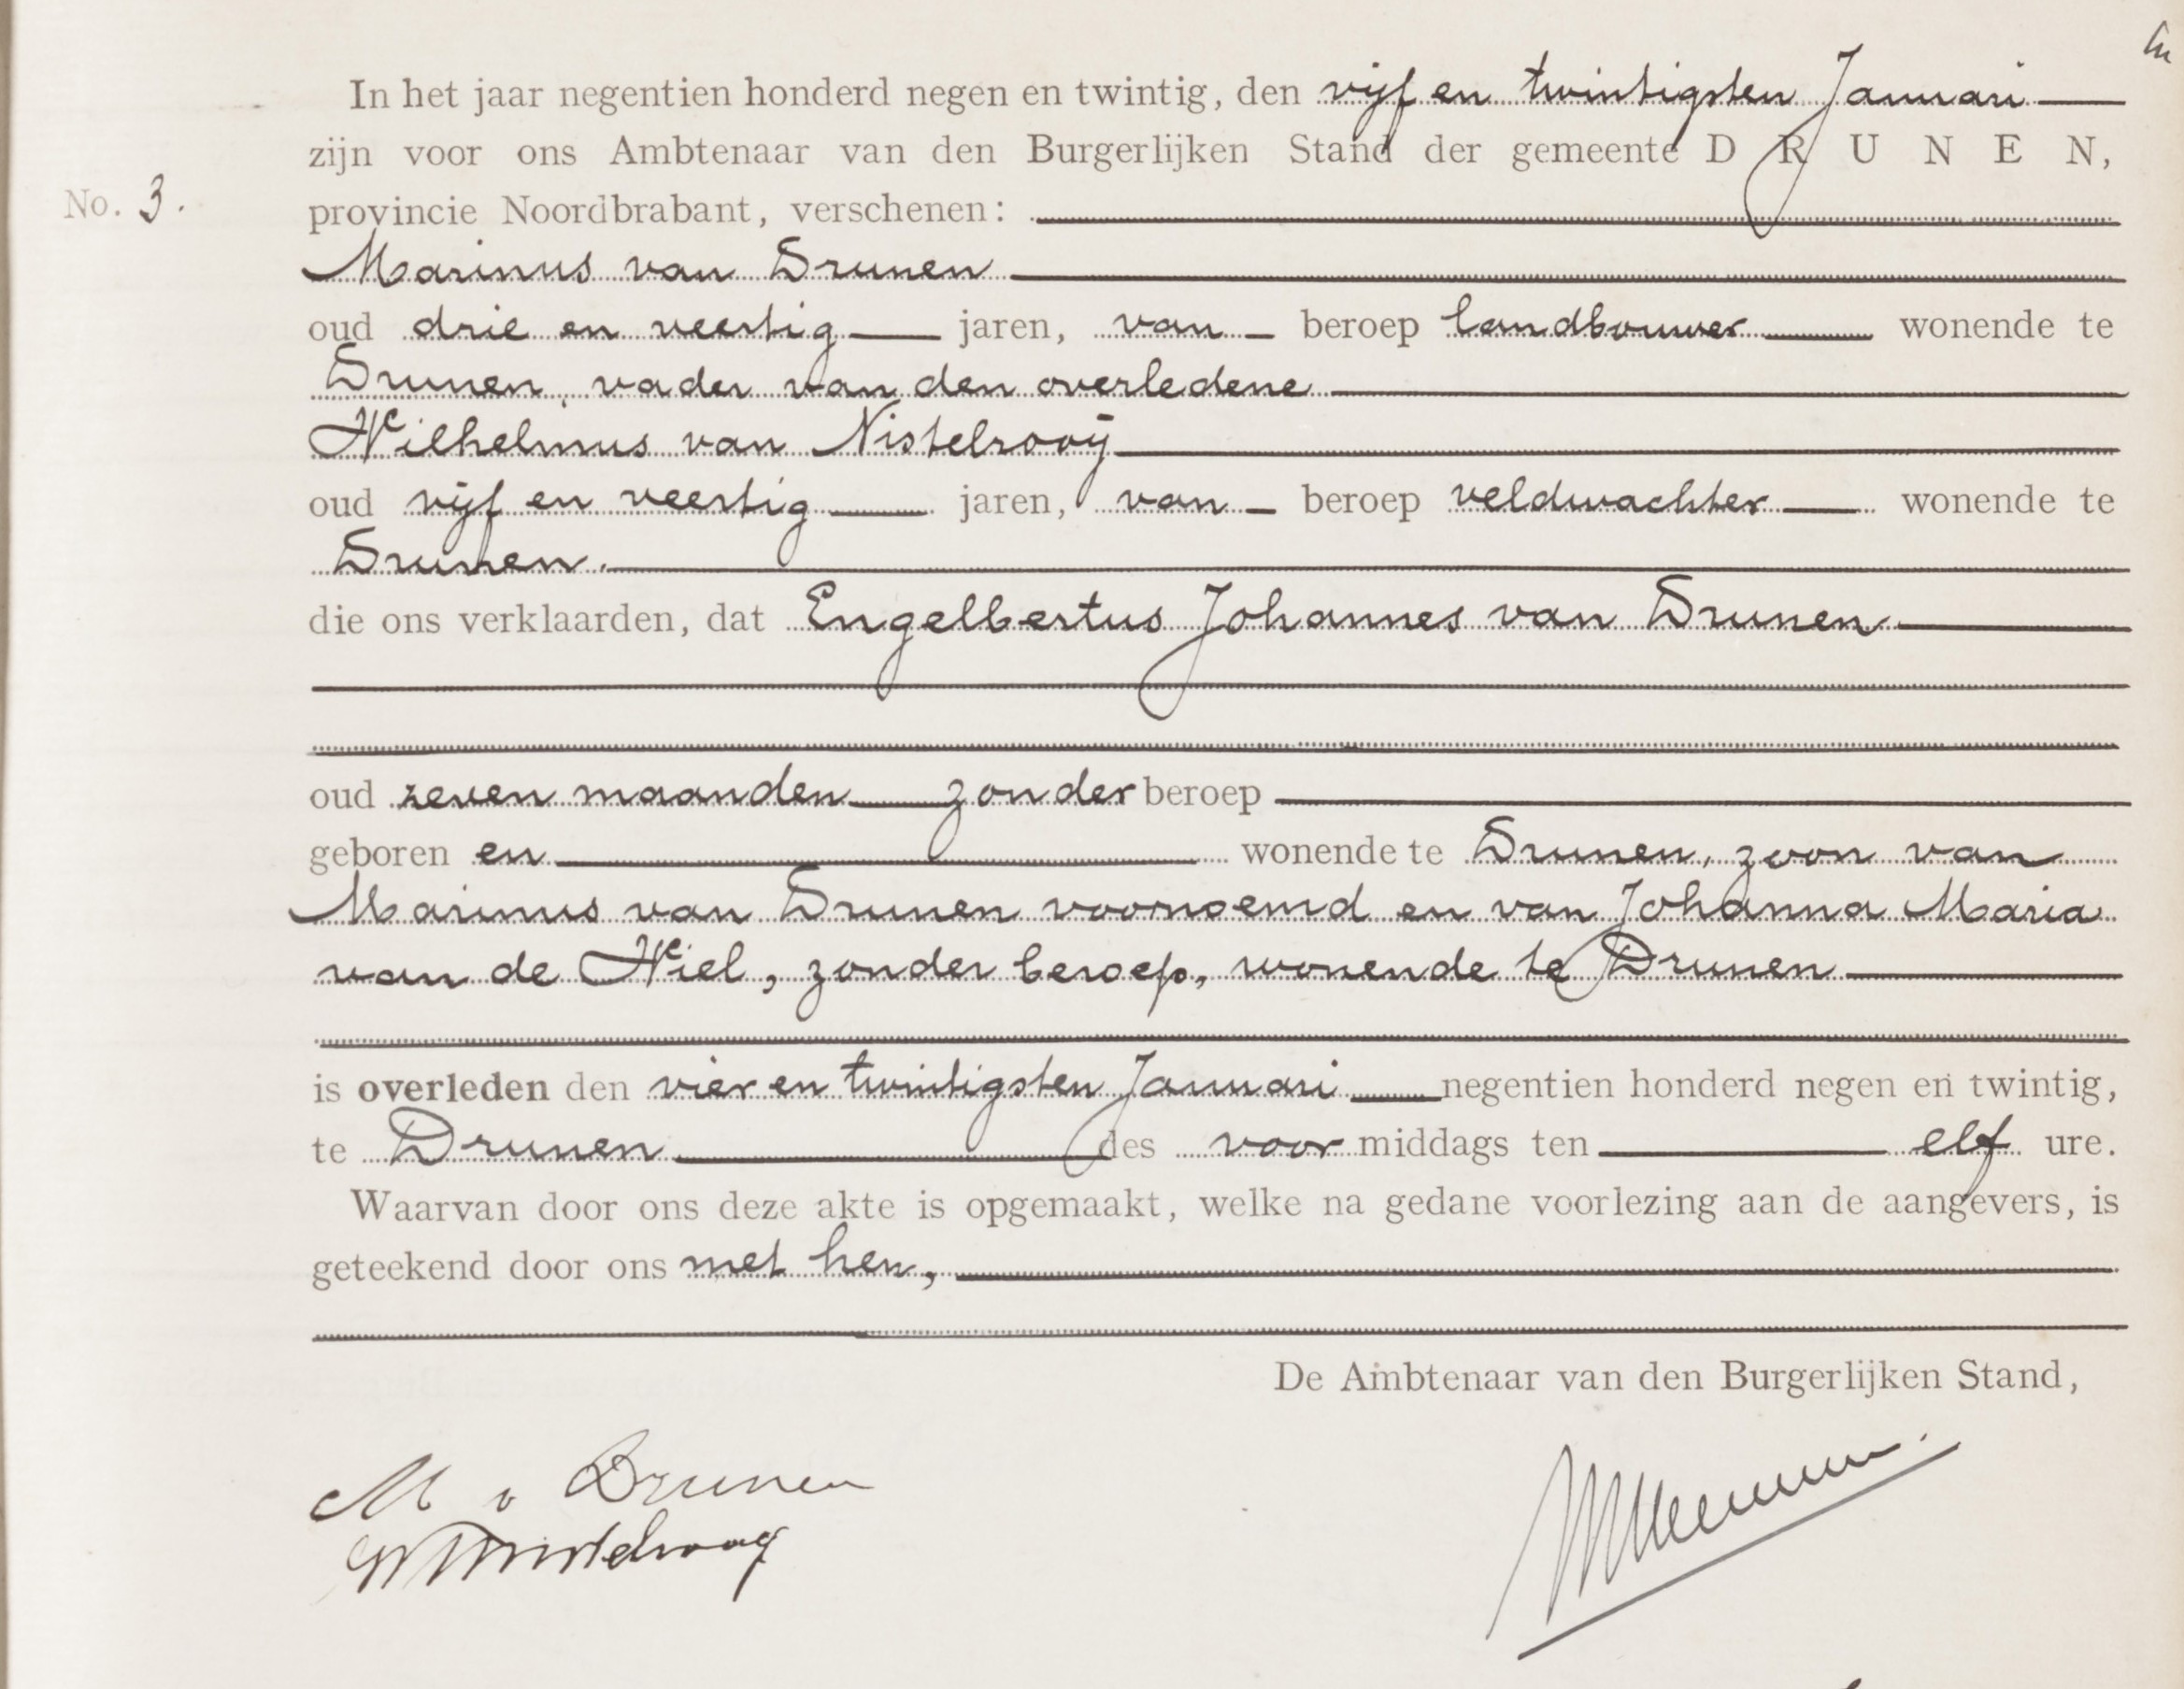 In het jaar negentien honderd negen en twintig, den vijf en twintigsten Januari
zijn voor ons Ambtenaar van den Burgerlijken Stand der gemeente DRUNEN,
No. 3. provincie Noordbrabant, verschenen:
Marinus van Drunen
oud drie en veertig jaren, van beroep landbouwer wonende te
Drunen, vader van den overledene
Wilhelmus van Nistelrooij
oud vijf en veertig jaren, van beroep veldwachter wonende te
Drunen.
die ons verklaarden, dat Engelbertus Johannes van Drunen
oud zeven maanden zonder beroep
geboren en wonende te Drunen, zoon van
Marinus van Drunen voornoemd en van Johanna Maria
van de Wiel, zonder beroep, wonende te Drunen
is overleden den vier en twintigsten Januari negentien honderd negen en twintig,
te Drunen des voor middags ten elf ure.
Waarvan door ons deze akte is opgemaakt, welke na gedane voorlezing aan de aangevers, is
geteekend door ons met hen,
De Ambtenaar van den Burgerlijken Stand,
M v Drunen